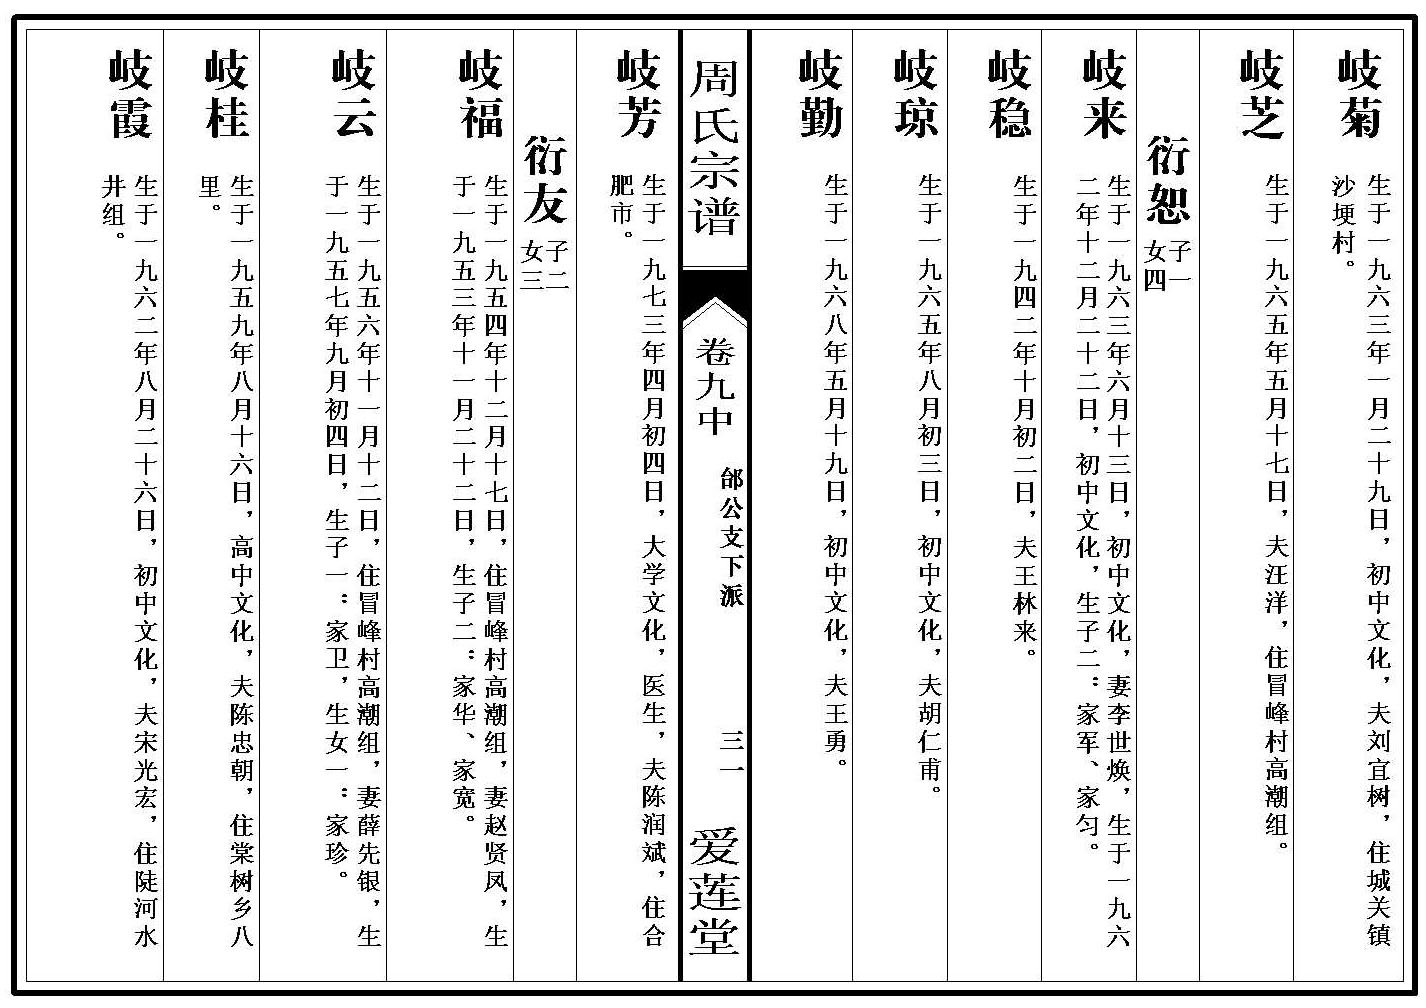 岐菊
生于一九六三年一月二十九日，初中文化，夫刘宜树，住城关镇
沙埂村。
岐芝
生于一九六五年五月十七日，夫汪洋，住冒峰村高潮组。
衍恕
子一
女四
岐来
生于一九六三年六月十三日，初中文化，妻李世焕，生于一九六
二年十二月二十二日，初中文化，生子二：家军、家匀。
岐稳
生于一九四二年十月初二日，夫王林来。
岐琼
生于一九六五年八月初三日，初中文化，夫胡仁甫。
岐勤
生于一九六八年五月十九日，初中文化，夫王勇。
周氏宗谱
卷九中
邰公支下派
三一
爱莲堂
岐芳
生于一九七三年四月初四日，大学文化，医生，夫陈润斌，住合
肥市。
衍友
子二
女三
岐福
生于一九五四年十二月十七日，住冒峰村高潮组，妻赵贤凤，生
于一九五三年十一月二十二日，生子二：家华、家宽。
岐云
生于一九五六年十一月十二日，住冒峰村高潮组，妻薛先银，生
于一九五七年九月初四日，生子一：家卫，生女一：家珍。
岐桂
生于一九五九年八月十六日，高中文化，夫陈忠朝，住棠树乡八
里。
岐霞
生于一九六二年八月二十六日，初中文化，夫宋光宏，住陡河水
井组。